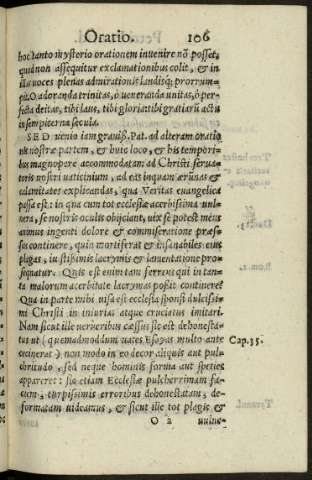 Oratio. 106
hoc tanto mysterio orationem inuenire nõ posset,
quã non assequitur exclamationibus colit, & in
illas voces plenas admirationis laudisq; prorrum-
pit. O adoranda trinitas, ò veneranda unitas, ô per-
fecta deitas, tibi laus, tibi gloria: tibi gratiarũ actio
in sempiterna sæcula.
SED uenio iam grauiss. Pat. ad alteram oratio
nis nostræ partem, & huic loco, & his tempori-
bus magnopere accommodatam: ad Christi serua-
toris nostri uaticinium, ad eas inquam ærũnas &
calamitates explicandas, quas Veritas euangelica
passa est: in qua cum tot ecclesiæ acerbissima uul-
nera, se nostris oculis obijciant, uix se potest meus
animus ingenti dolore & commiseratione præs-
sus continere, quin mortiferas & insanabiles eius
plagas, iustissimis lacrymis & lamentatione pro-
sequatur. Quis est enim tam ferreus qui in tan-
ta malorum acerbitate lacrymas possit continere?
Qua in parte mihi uisa est ecclesia sponsi dulcissi-
mi Christi in iniurias atque cruciatus imitari.
Nam sicut ille uerueribus cæsus sic est dehonesta-
tus ut (quemadmodum uates Esayas multo ante
cecinerat) non modo in eo decor aliquis aut pul-
chritudo, sed neque hominis forma aut species
appareret: sic etiam Ecclesiæ pulcherrimam fa-
ciem, turpissimis erroribus dehonestatam, de-
formatam uideamus, & sicut ille tot plagis &
Cap. 35.
O 2 uulne-